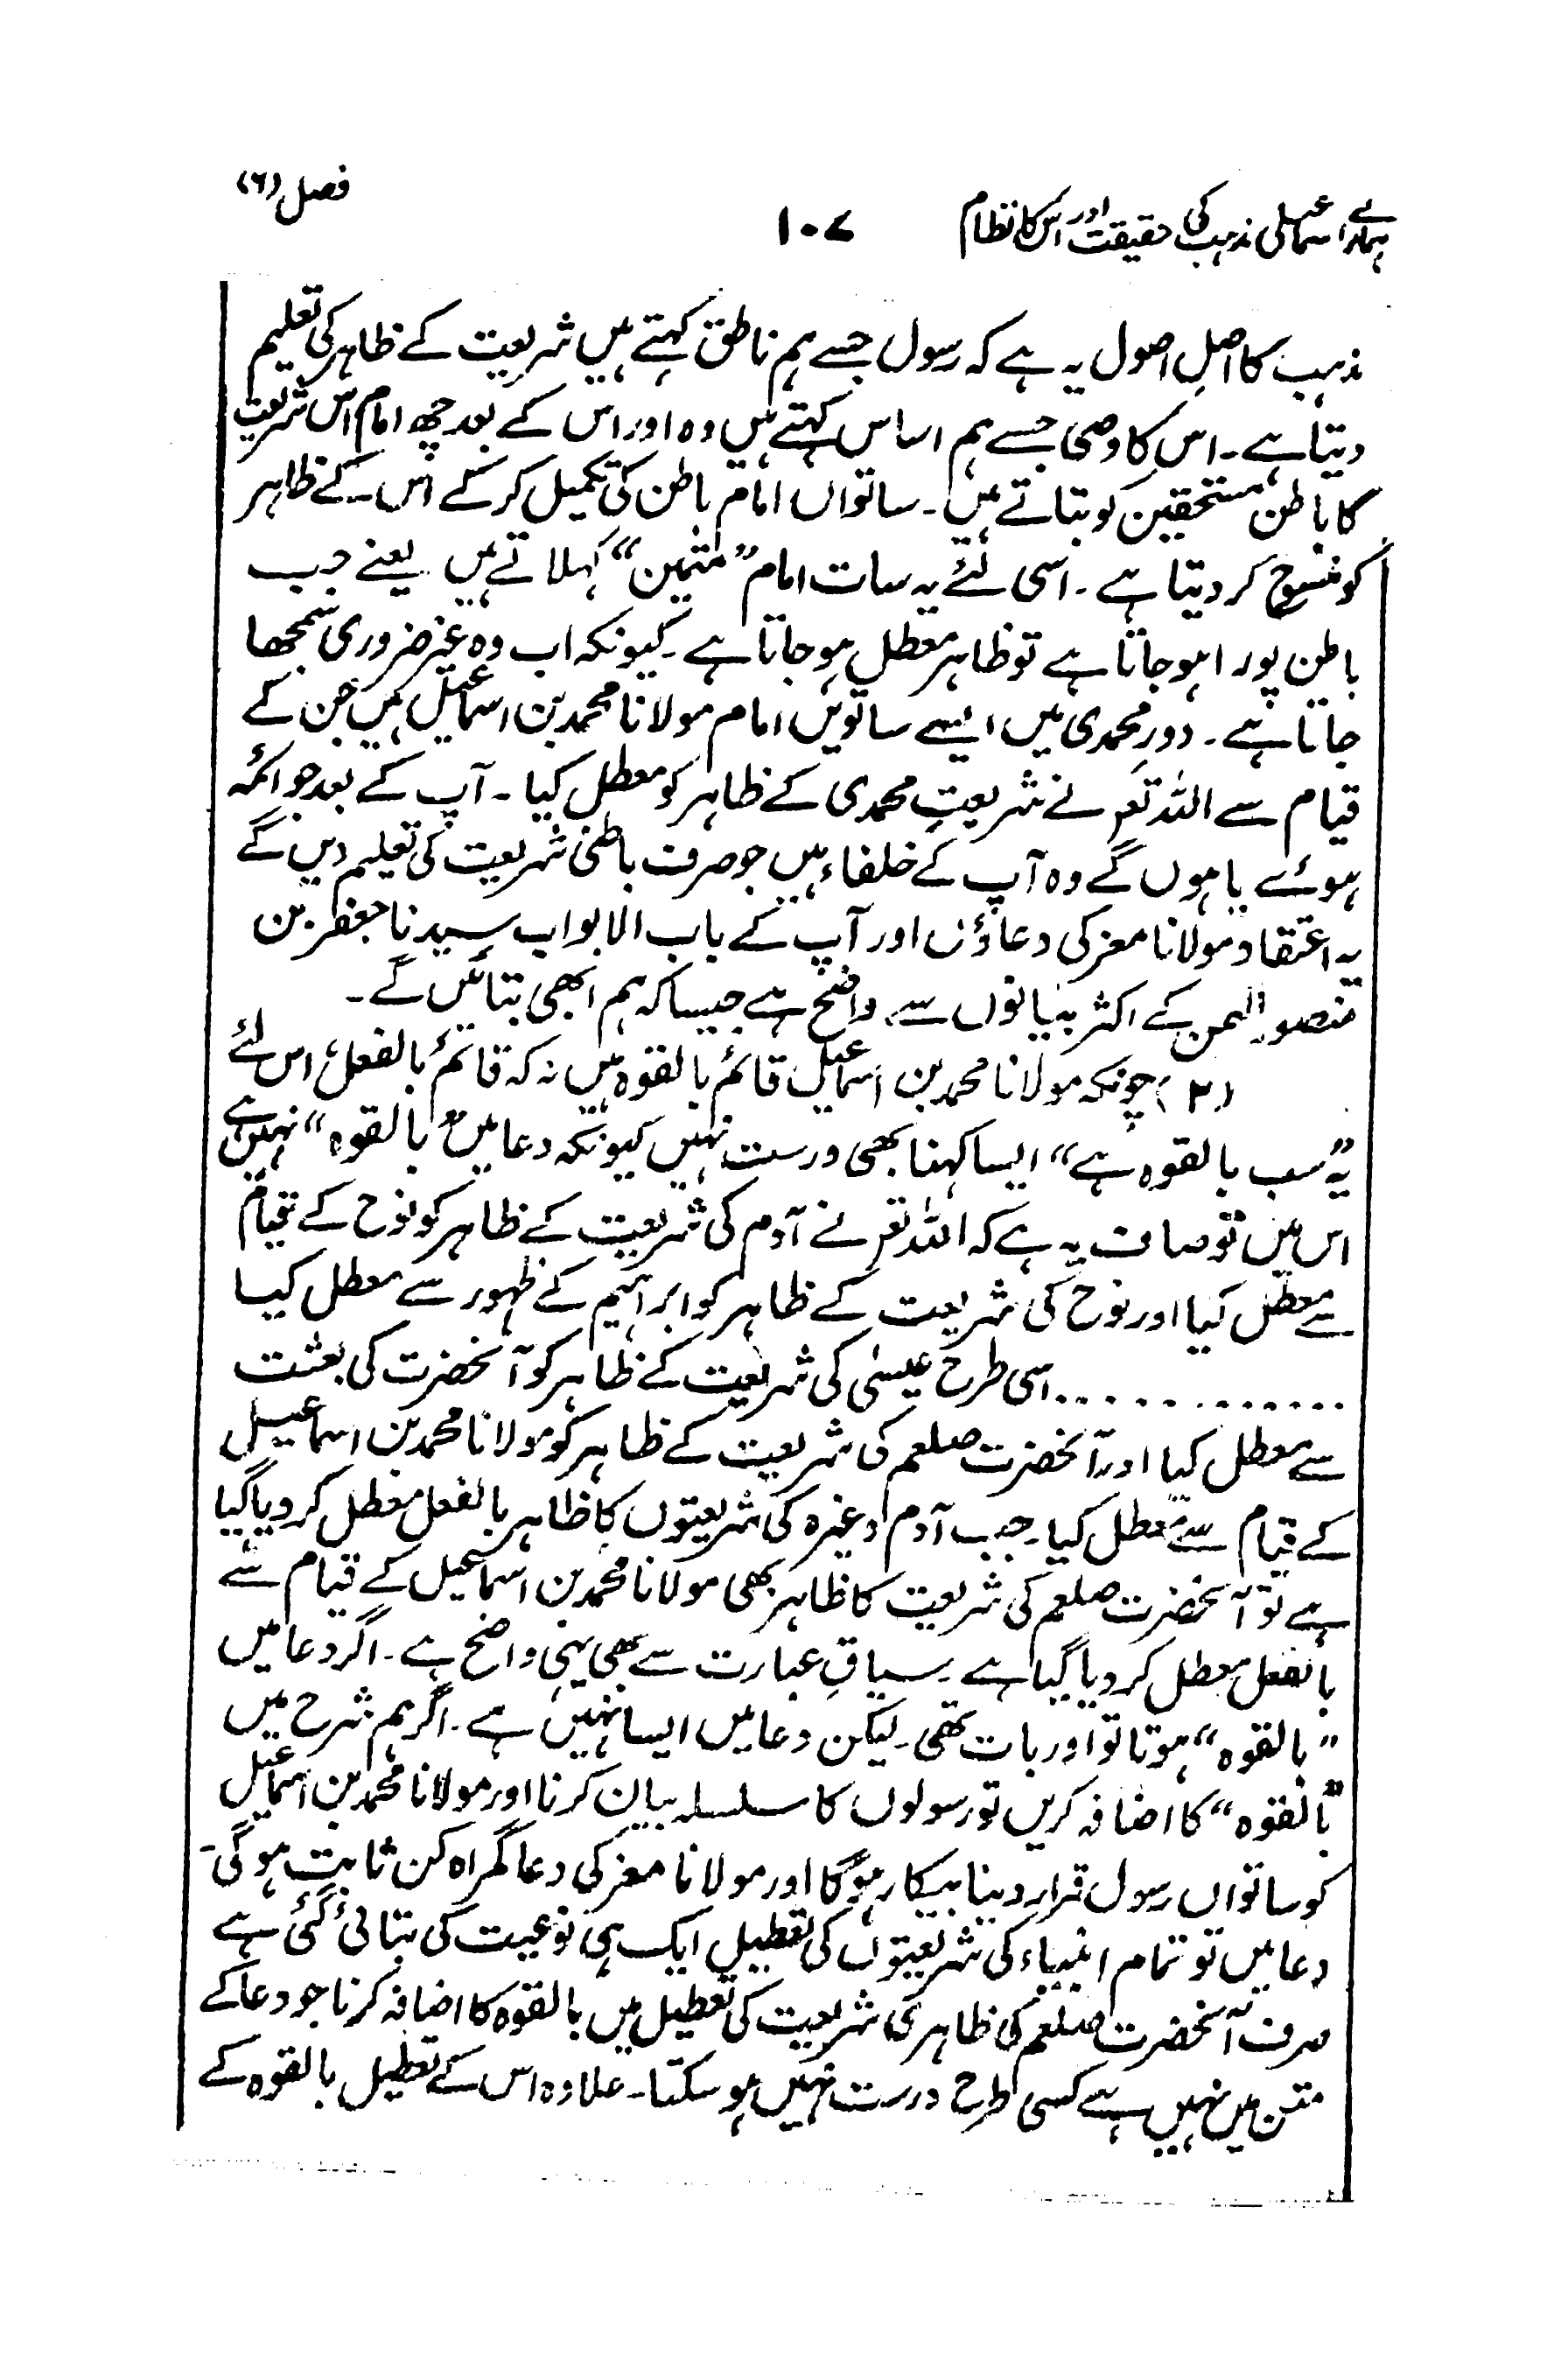 فصل (۶)
ہمارے اسماعیلی مذہب کی حقیقت اور اس کا نظام ۱۰۷
مذہب کا اصلِ اصول یہ ہے کہ رسول جسے ہم ناطق کہتے ہیں شریعت کے ظاہر کی تعلیم
دیتا ہے۔ اس کا وصی جسے ہم اساس کہتے ہیں وہ اور اس کے بعد چھ امام اس شریعت
کا باطن مستحقین کو بتاتے ہیں۔ ساتواں امام باطن کی تکمیل کر کے اس کے ظاہر
کو منسوخ کر دیتا ہے۔ اسی لئے یہ سات امام ”متمین“ کہلاتے ہیں یعنے جب
باطن پورا ہو جاتا ہے تو ظاہر معطل ہو جاتا ہے۔ کیونکہ اب وہ غیر ضروری سمجھا
جاتا ہے۔ دورِ محمدی میں ایسے ساتویں امام مولانا محمد بن اسماعیل ہیں جن کے
قیام سے اللہ تعم نے شریعتِ محمدی کے ظاہر کو معطل کیا۔ آپ کے بعد جو ائمہ
ہوئے یا ہوں گے وہ آپ کے خلفاء ہیں جو صرف باطنی شریعت کی تعلیم دیں گے
یہ اعتقاد مولانا معز کی دعاؤں اور آپ کے باب الابواب سیدنا جعفر بن
منصور الیمن کے اکثر بیانوں سے واضح ہے جیسا کہ ہم ابھی بتائیں گے۔
(۲) چونکہ مولانا محمد بن اسماعیل قائم بالقوہ ہیں نہ کہ قائم بالفعل، اس لئے
یہ ”سب بالقوہ ہے“ ایسا کہنا بھی درست نہیں کیونکہ دعا میں ”بالقوہ“ نہیں ہے
اس میں تو صاف یہ ہے کہ اللہ تعم نے آدم کی شریعت کے ظاہر کو نوح کے قیام
سے معطل کیا اور نوح کی شریعت کے ظاہر کو ابراہیم کے ظہور سے معطل کیا
............. اسی طرح عیسیٰ کی شریعت کے ظاہر کو آنحضرت کی بعثت
سے معطل کیا اور آنحضرت صلعم کی شریعت کے ظاہر کو مولانا محمد بن اسماعیل
کے قیام سے معطل کیا۔ جب آدم وغیرہ کی شریعتوں کا ظاہر بالفعل معطل کر دیا گیا
ہے تو آنحضرت صلعم کی شریعت کا ظاہر بھی مولانا محمد بن اسماعیل کے قیام سے
بالفعل معطل کر دیا گیا ہے۔ سیاقِ عبارت سے بھی یہی واضح ہے۔ اگر دعا میں
”بالقوہ“ ہوتا تو اور بات تھی۔ لیکن دعا میں ایسا نہیں ہے۔ اگر ہم شرح میں
”بالقوہ“ کا اضافہ کریں تو رسولوں کا سلسلہ بیان کرنا اور مولانا محمد بن اسماعیل
کو ساتواں رسول قرار دینا بیکار ہوگا اور مولانا معز کی دعا گمراہ کن ثابت ہو گی۔
دعا میں تو تمام انبیاء کی شریعتوں کی تعطیل ایک ہی نوعیت کی بتائی گئی ہے
صرف آنحضرت صلعم کی ظاہری شریعت کی تعطیل میں بالقوہ کا اضافہ کرنا جو دعا کے
متن میں نہیں ہے کسی طرح درست نہیں ہو سکتا۔ علاوہ اس کے تعطیل بالقوہ کے